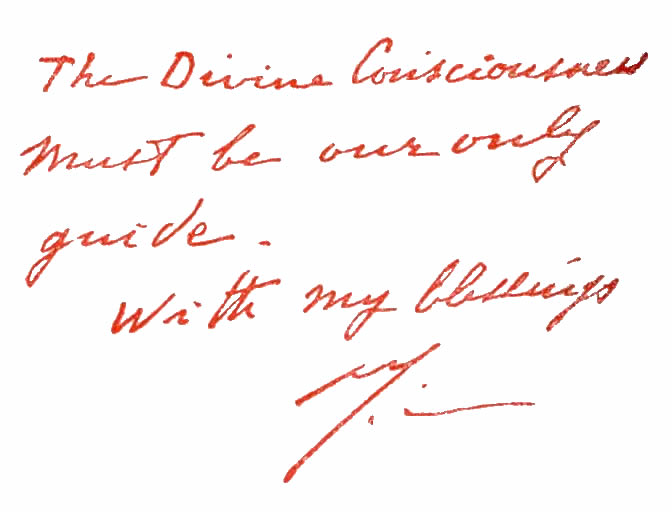 The Divine Consciousness
must be our only
guide.
With my blessings